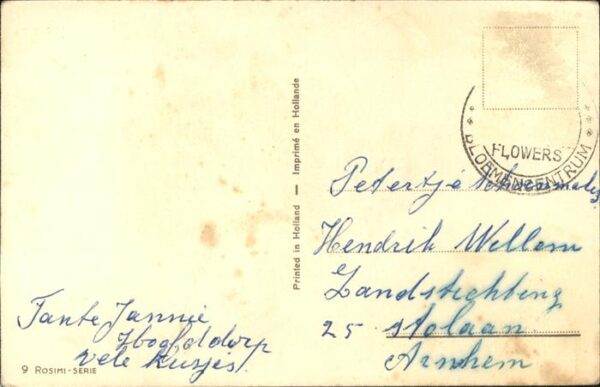 Tante Jannie
Hoofddorp
vele kusjes.
9 ROSIMI-SERIE
Printed in Holland — Imprimé en Hollande
FLOWERS
BLOEMENCENTRUM
Petertje
Hendrik Willem
Zandstichting
25 stolaan
Arnhem